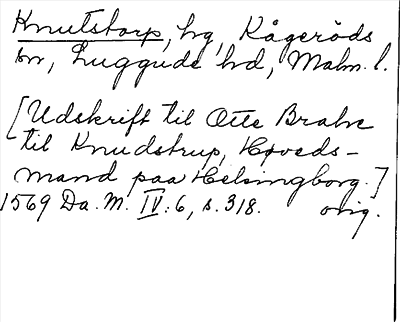 Knutstorp, hg, Kågeröds
sn, Luggude hd, Malm. l.
[Udskrift til Otte Brahe
til Knudstrup, Høveds-
mand paa Helsingborg.]
1569 Da. M. IV:6, s. 318. orig.